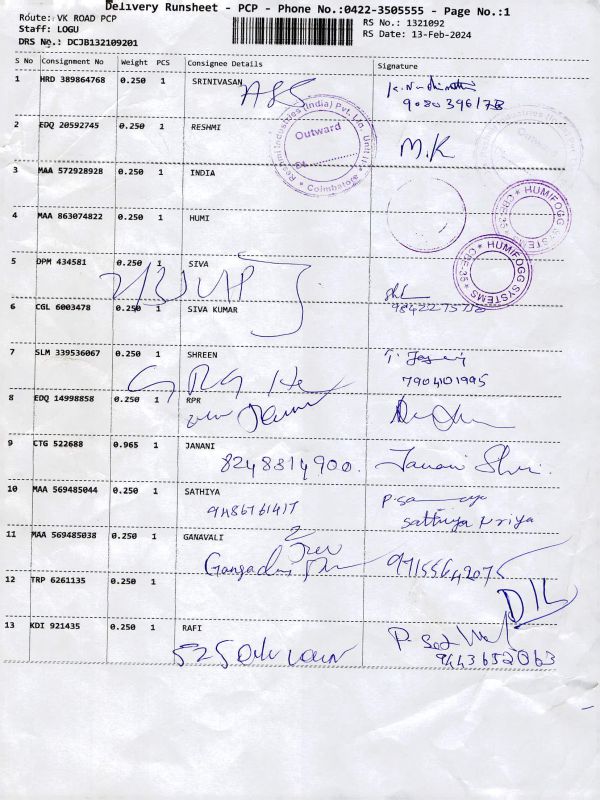 Delivery Runsheet - PCP - Phone No.:0422-3505555 - Page No.:1
Route: VK ROAD PCP
RS No.: 1321092
Staff: LOGU
RS Date: 13-Feb-2024
DRS No.: DCJB132109201
S No Consignment No Weight PCS Consignee Details Signature
1 HRD 389864768 0.250 1 SRINIVASAN
2 EDQ 20592745 0.250 1 RESHMI M.K
Reshmi Industries (India) Pvt. Ltd. Unit
Outward
Coimbatore
3 MAA 572928928 0.250 1 INDIA
4 MAA 863074822 0.250 1 HUMI
HUMIFOGG SYSTEMS
CBE-25
HUMIFOGG SYSTEMS
CBE-25
5 DPM 434581 0.250 1 SIVA
6 CGL 6003478 0.250 1 SIVA KUMAR
7 SLM 339536067 0.250 1 SHREEN
7904101995
8 EDQ 14998858 0.250 1 RPR
9 CTG 522688 0.965 1 JANANI
8248814900. Janani
10 MAA 569485044 0.250 1 SATHIYA
9486761417
Sathiya Priya
11 MAA 569485038 0.250 1 GANAVALI
97155642075
12 TRP 6261135 0.250 1
13 KDI 921435 0.250 1 RAFI
9443652063